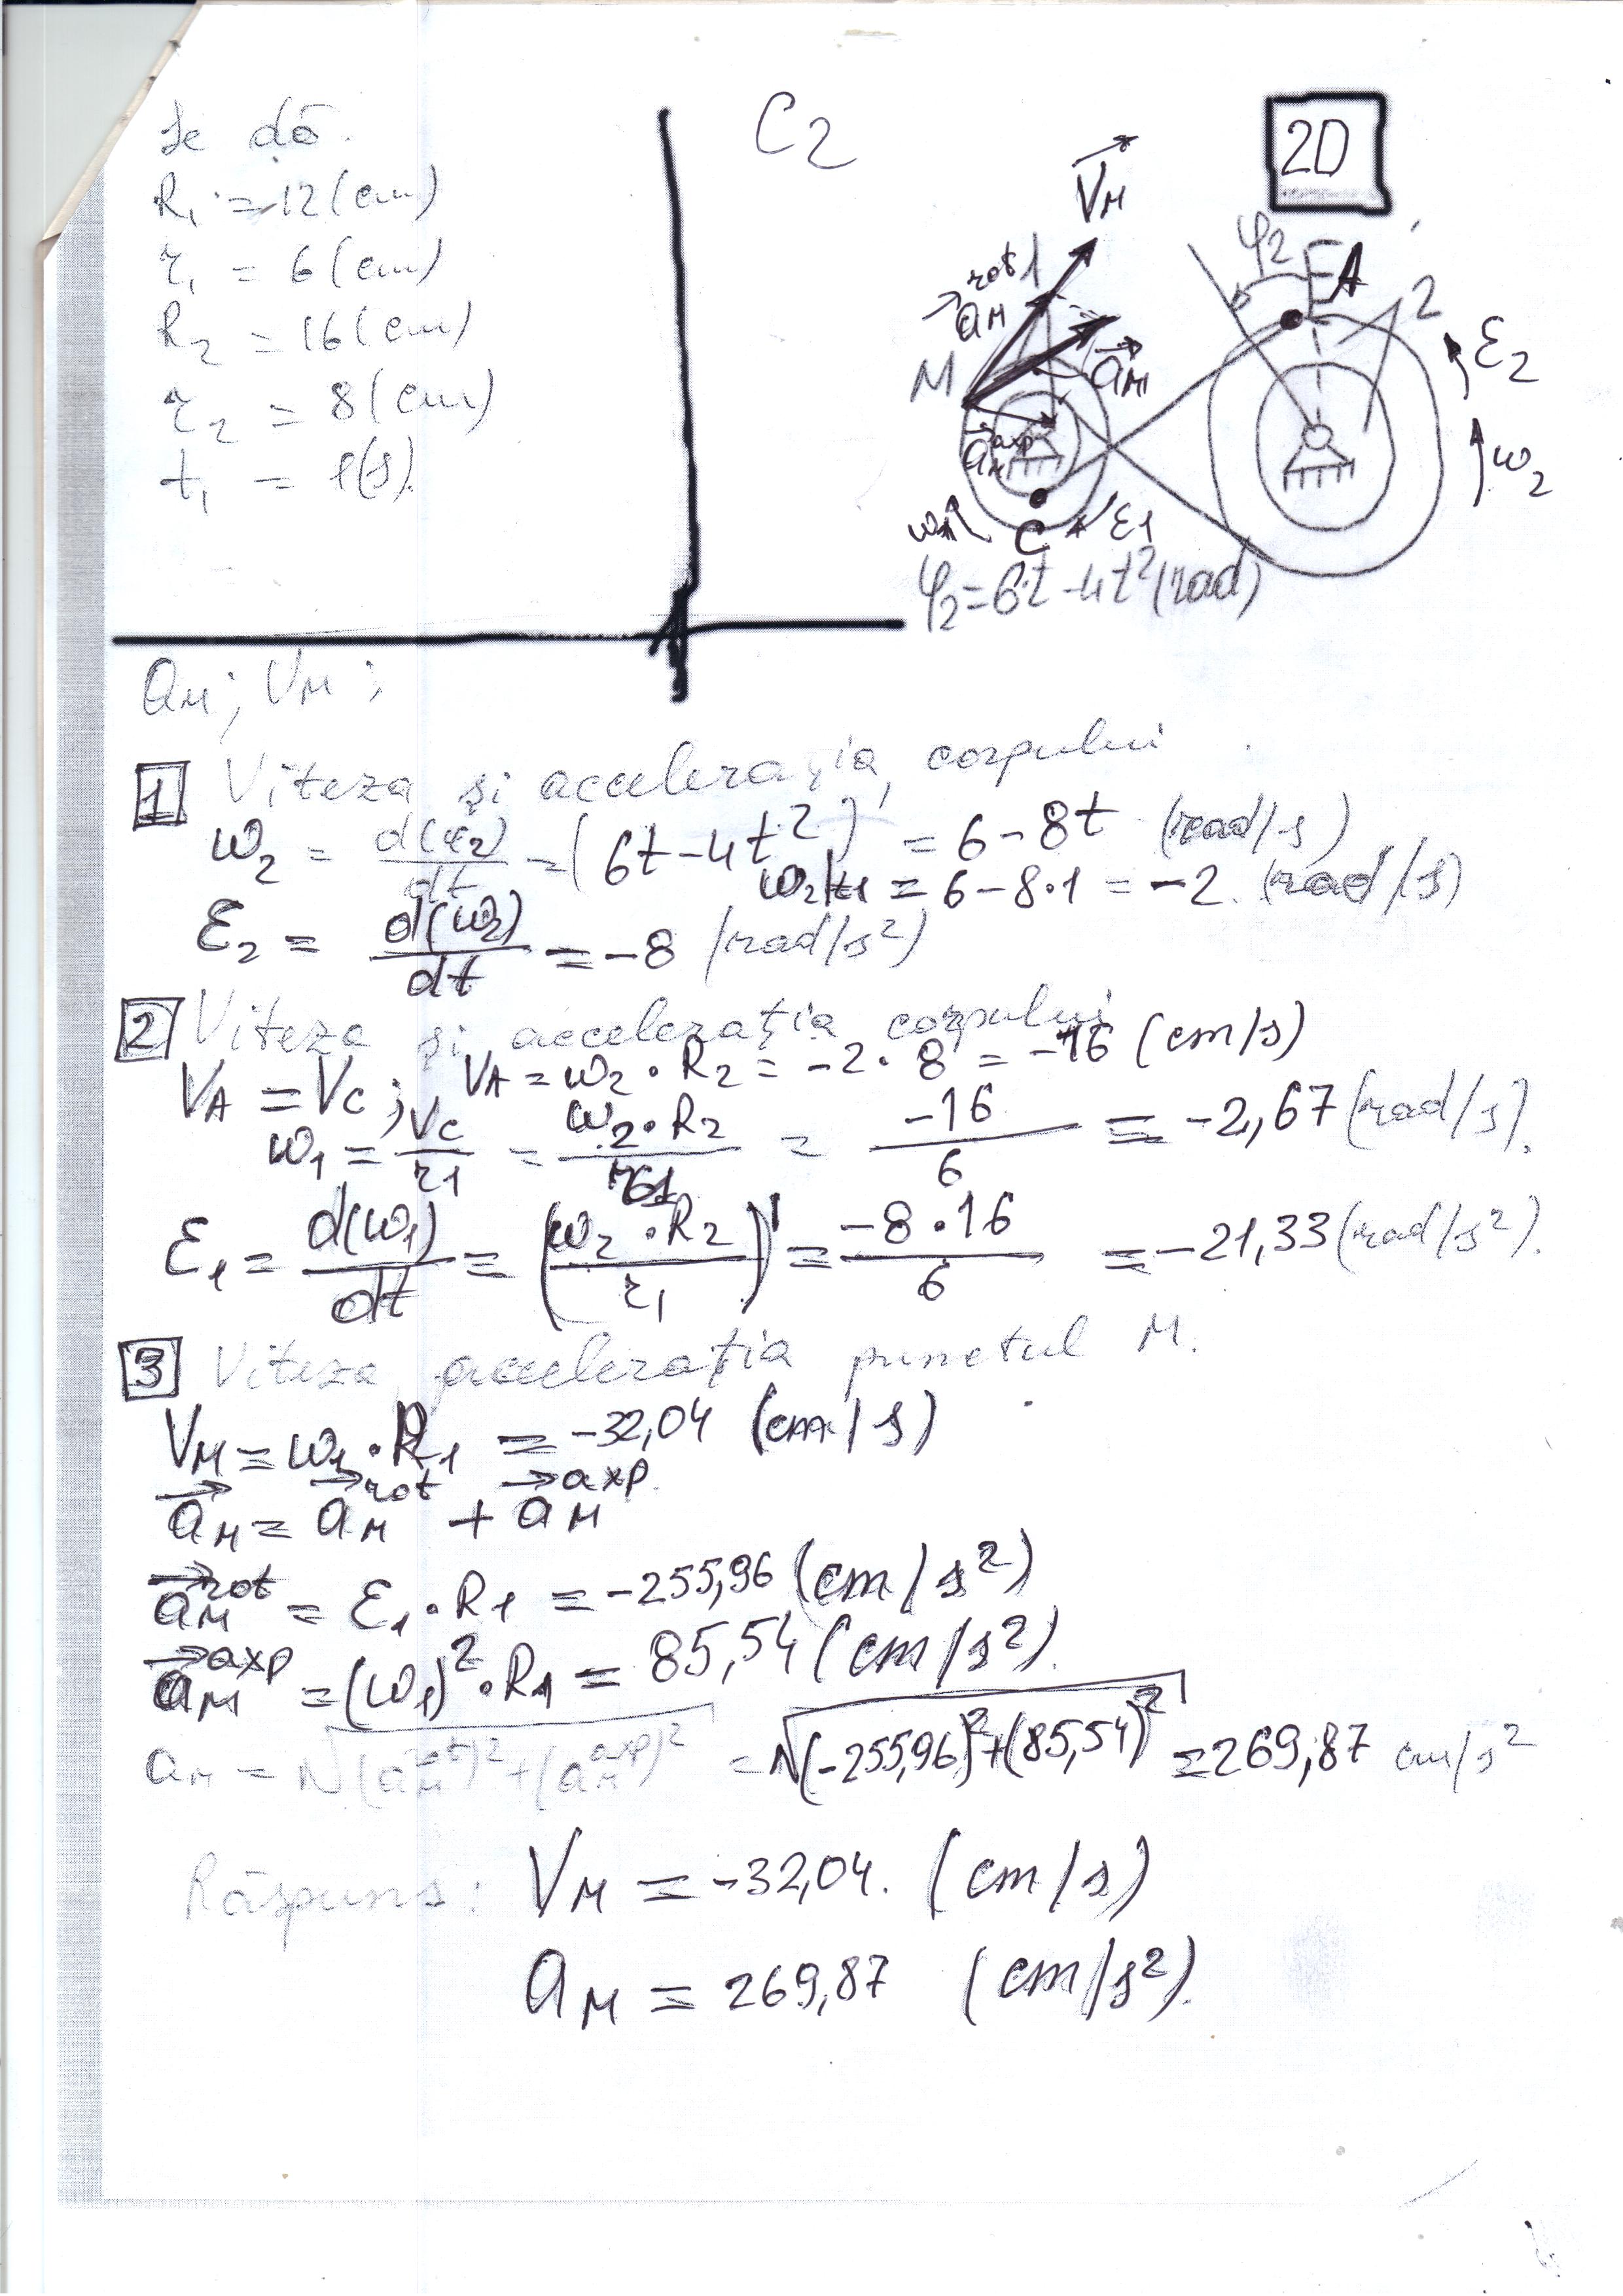 Se dă.
R₁ = 12 (cm)
r₁ = 6 (cm)
R₂ = 16 (cm)
r₂ = 8 (cm)
t₁ = 1(s).
C2
2D
V⃗M
a⃗M rot 1
M
a⃗M
a⃗M axp
ω1
C
ε1
φ2
A
2
ε2
ω2
φ2 = 6t - 4t² (rad)
aM; VM;
1 Viteza și accelerația corpului
ω2 = d(φ2)/dt = (6t - 4t²) = 6 - 8t (rad/s)
ω2|t1 = 6 - 8·1 = -2. (rad/s)
ε2 = d(ω2)/dt = -8 (rad/s²)
2 Viteza și accelerația corpului
VA = VC; VA = ω2 · R2 = -2 · 8 = -16 (cm/s)
ω1 = VC/r1 = ω2·R2/r1 = -16/6 = -2,67 (rad/s).
ε1 = d(ω1)/dt = (ω2·R2/r1)' = -8·16/6 = -21,33 (rad/s²).
3 Viteza, accelerația punctul M.
VM = ω1 · R1 = -32,04 (cm/s)
a⃗M = a⃗M rot + a⃗M axp.
a⃗M rot = ε1 · R1 = -255,96 (cm/s²)
a⃗M axp = (ω1)² · R1 = 85,54 (cm/s²).
aM = √(aM rot)² + (aM axp)² = √(-255,96)² + (85,54)² = 269,87 cm/s²
Răspuns: VM = -32,04. (cm/s)
aM = 269,87 (cm/s²).